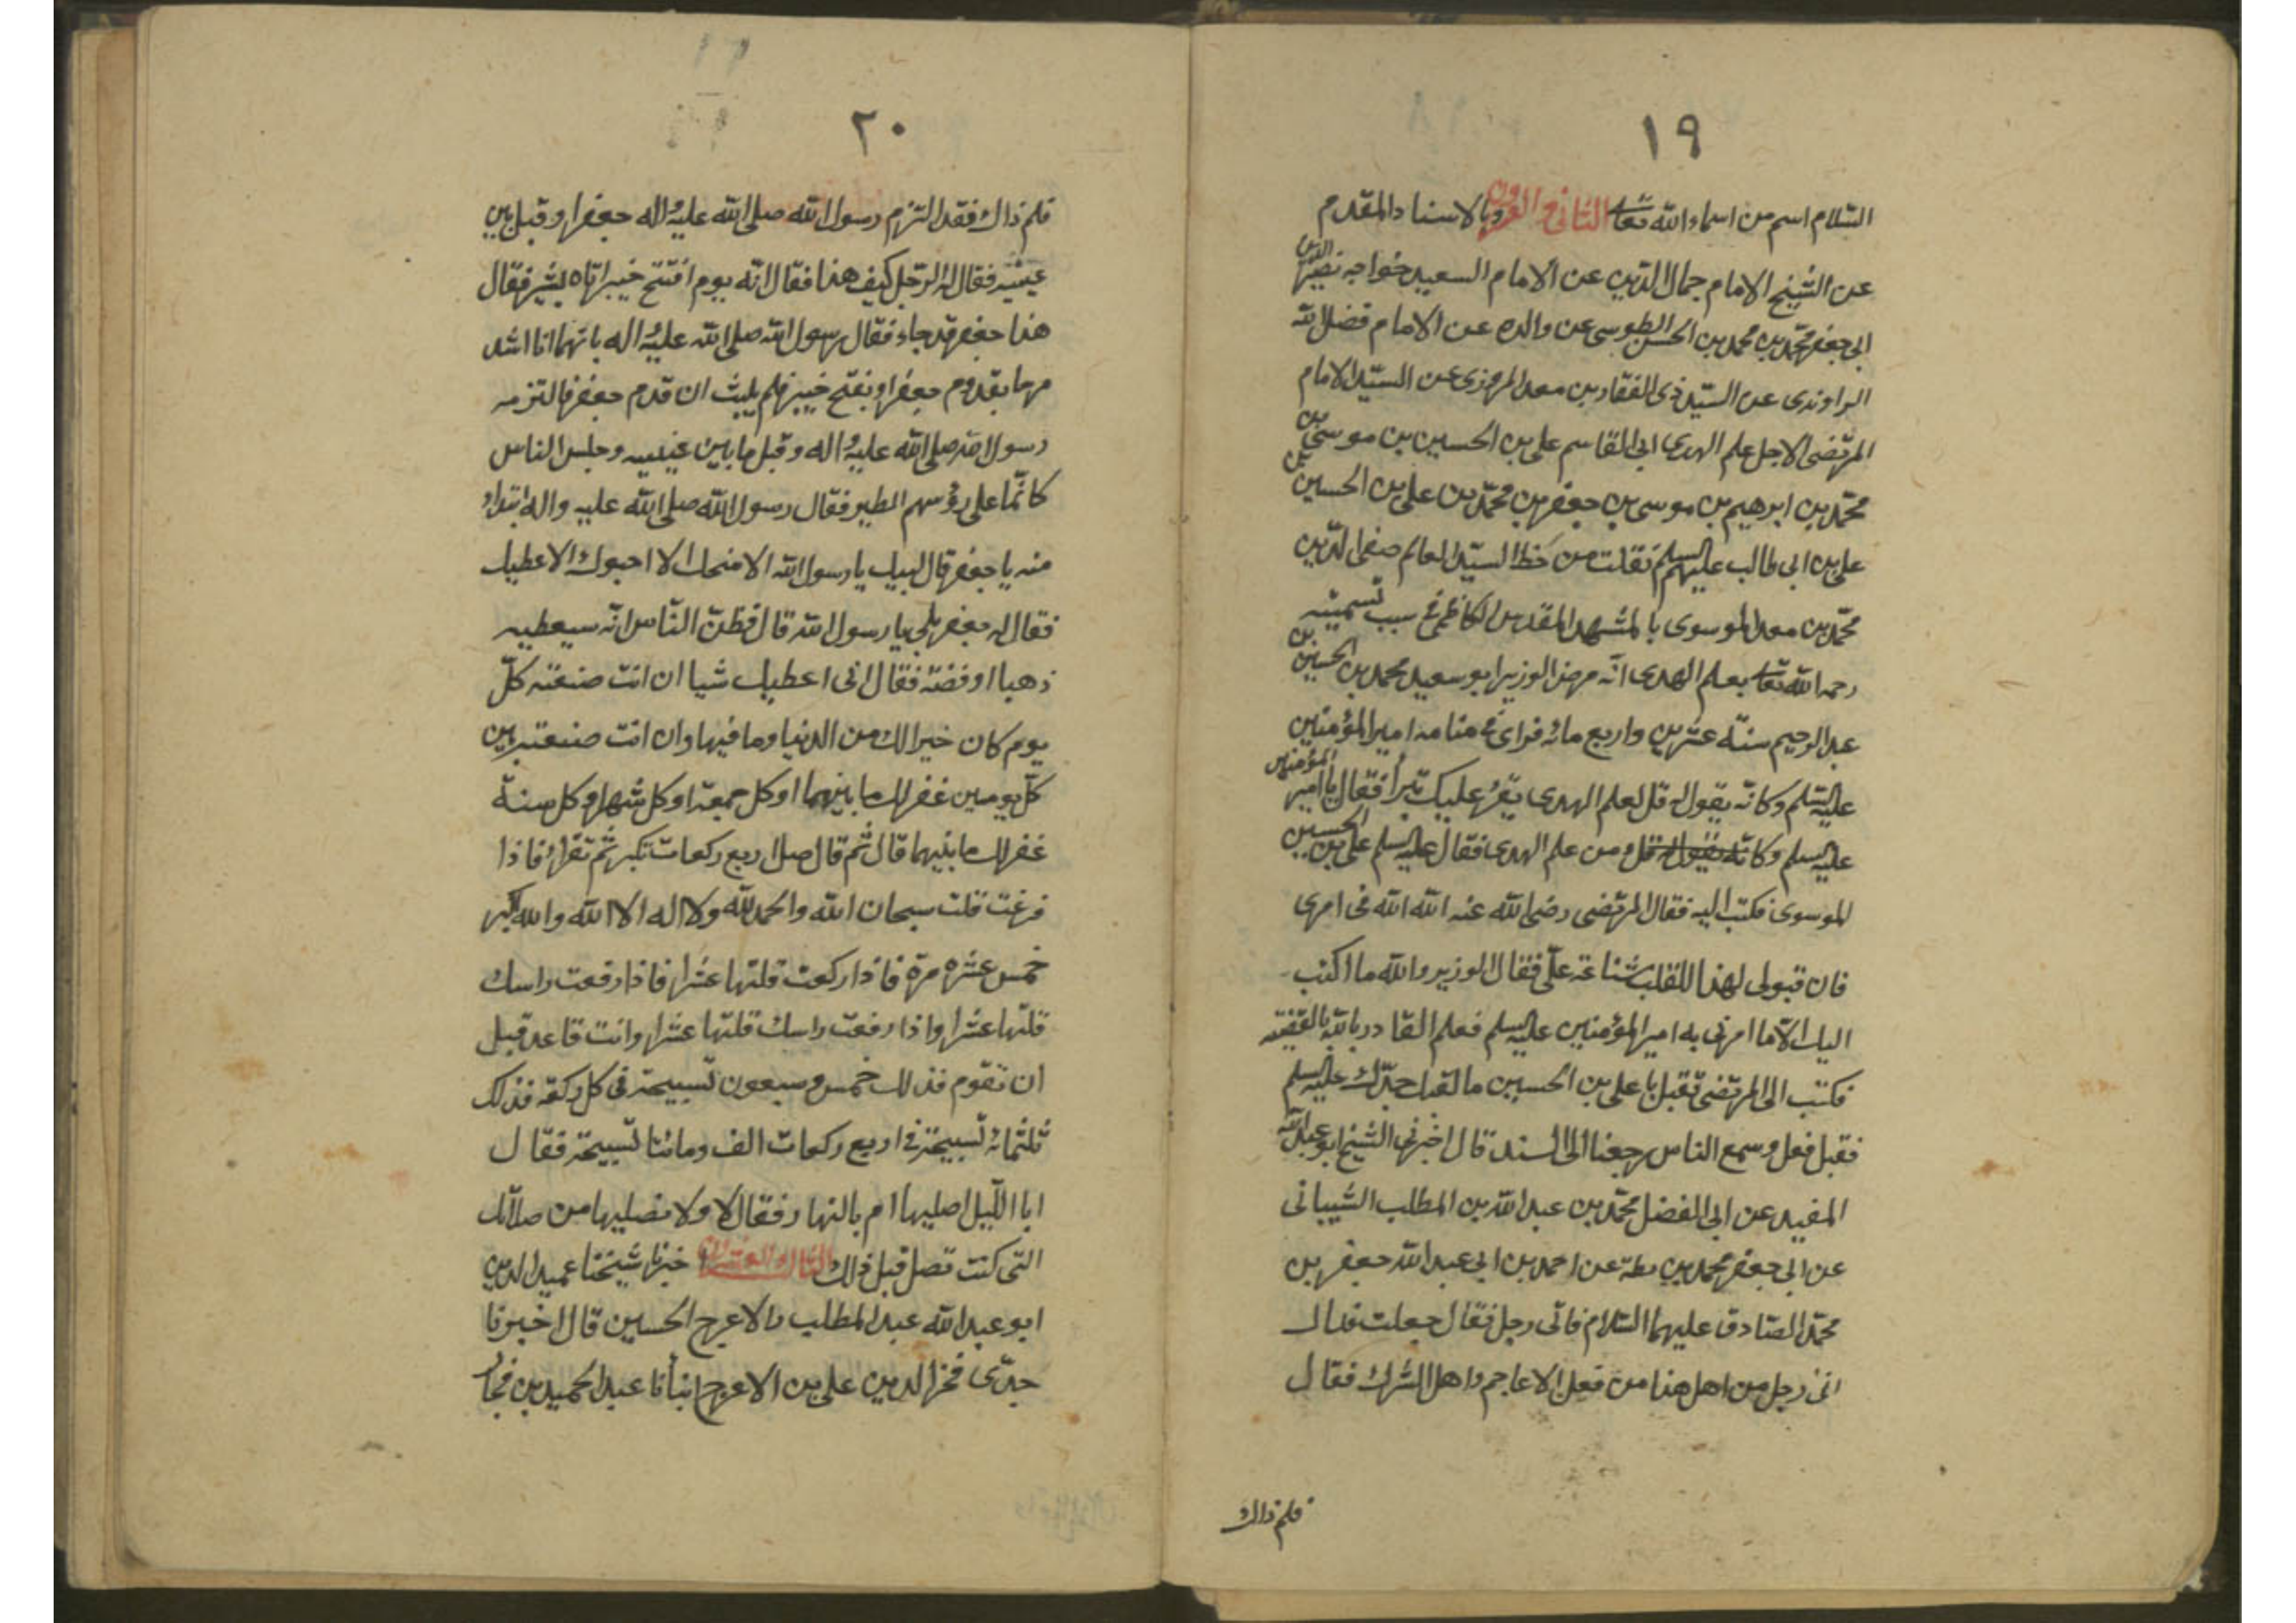 ١٩
السّلام اسم من اسماء الله تعالى الثاني والعشرون وبالاسناد المقدم
عن الشيخ الامام جمال الدّين عن الامام السعيد خواجه نصير الدين
ابي جعفر محمّد بن محمد بن الحسن الطوسي عن والده عن الامام فضل الله
الراوندى عن السيّد ذى الفقار بن معد المروزى عن السيّد الامام
المرتضى الاجل علم الهدى ابي القاسم على بن الحسين بن موسى بن
محمّد بن ابرهيم بن موسى بن جعفر بن محمّد بن على بن الحسين بن
على بن ابى طالب عليهم السلم نقلت من خط السيّد العالم صفى الدّين
محمّد بن معد الموسوى بالمشهد المقدس الكاظمى فى سبب تسميته
رحمه الله تعالى بعلم الهدى انّه مرض الوزير ابو سعيد محمد بن الحسين بن
عبد الرحيم سنة عشرين واربع مائة فراى فى منامه امير المؤمنين
عليه السّلم وكانّه يقول له قل لعلم الهدى يقرء عليك تبرأ فقال يا امير المؤمنين
عليه السلم وكانّه يقول له قل ومن علم الهدى فقال عليه السلم على بن الحسين
الموسوى فكتب اليه فقال المرتضى رضى الله عنه الله الله فى امرى
فان قبولى لهذا اللقلب شناعة علىّ فقال الوزير والله ما اكتب
اليك الّا ما امرنى به امير المؤمنين عليه السلم فعلم القادر بالله بالقضيّة
فكتب الى المرتضى تقبل يا على بن الحسين ما لقبك جدّك عليه السلم
فقبل فعل وسمع الناس رجعنا الى السند قال اخبرنى الشيخ ابو عبد الله
المفيد عن ابى المفضل محمّد بن عبد الله بن المطلب الشيبانى
عن ابى جعفر محمد بن بطة عن احمد بن ابى عبد الله جعفر بن
محمّد الصّادق عليهما السّلام فاتى رجل فقال جعلت فداك
انى رجل من اهل هذا من فعل الاعاجم واهل الشرك فقال
فلم ذاك
٢٠
فلم ذاك فقد التزم رسول الله صلى الله عليه واله جعفرا وقبل بين
عينيه فقال له الرّجل كيف هذا فقال انّه يوم افتتح خيبر اتاه بشير فقال
هذا جعفر قد جاء فقال رسول الله صلى الله عليه واله بايّهما انا اشد
مهما بقدوم جعفر او بفتح خيبر فلم يلبث ان قدم جعفر فالتزمه
رسول الله صلى الله عليه واله وقبل ما بين عينيه وجلس الناس
كانّما على رؤسهم الطير فقال رسول الله صلى الله عليه واله ابتداء
منه يا جعفر قال لبيك يا رسول الله الا امنحك الا احبوك الا اعطيك
فقال له جعفر بلى يا رسول الله قال فظنّ النّاس انّه سيعطيه
ذهبا او فضّة فقال انى اعطيك شيا ان انت صنعته كلّ
يوم كان خيرا لك من الدنيا وما فيها وان انت صنعته بين
كلّ يومين غفر لك ما بينهما او كل جمعة او كل شهر او كل سنة
غفر لك ما بينهما قال ثم قال صل اربع ركعات تكبر ثم تقرا فاذا
فرغت قلت سبحان الله والحمد لله ولا اله الا الله والله اكبر
خمس عشره مرة فاذا ركعت قلتها عشرا فاذا رفعت راسك
قلتها عشرا واذا رفعت راسك قلتها عشرا وانت قاعد قبل
ان تقوم فذلك خمس وسبعون تسبيحة فى كل ركعة فذلك
ثلثمائة تسبيحة فى اربع ركعات الف ومائتا تسبيحة فقال
ابا اللّيل اصليها ام بالنهار فقال لا ولا تصليها من صلاتك
التى كنت تصل قبل ذلك الثالث والعشرون اخبرنا شيخنا عميد الدين
ابو عبد الله عبد المطلب بالاعرج الحسين قال اخبرنا
جدّى فخر الدين على بن الاعرج انبأنا عبد الحميد بن فخار